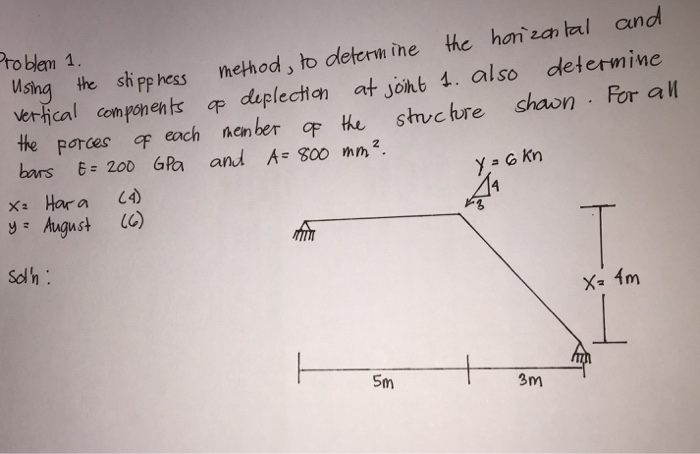 Problem 1.
Using the stiffness method, to determine the horizontal and
vertical components of deflection at joint 1. also determine
the forces of each member of the structure shown. For all
bars E = 200 GPa and A = 800 mm².
X = Hara (4)
y = August (6)
Sol'n :
Y = 6 Kn
4
3
X = 4m
5m
3m